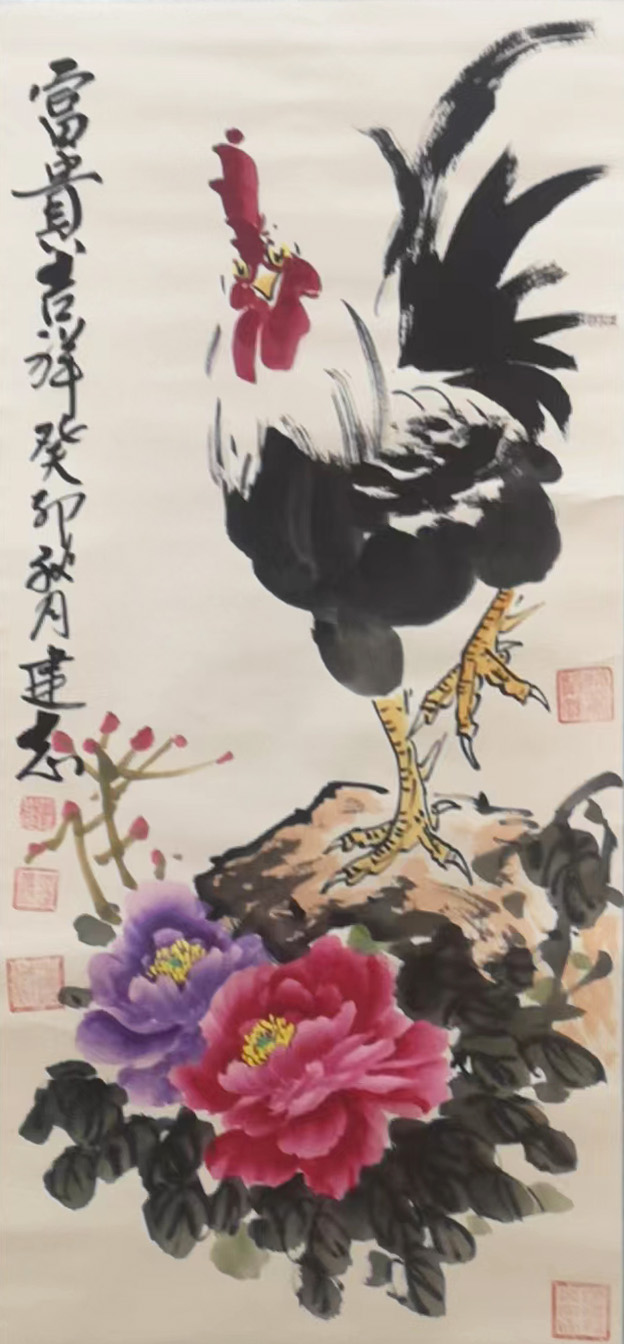 富貴吉祥癸卯秋月建志